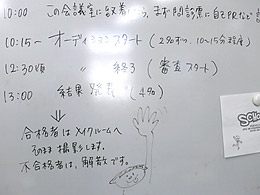 10:00 この会議室に
まず問診票に自己PRなど
10:15〜 オーディションスタート (2名ずつ、10〜15分程度)
12:30頃 〃 終了 (審査スタート)
13:00 結果発表 (4名)
合格者はメイクルームへ
そのまま撮影します。
不合格者は、解散です。